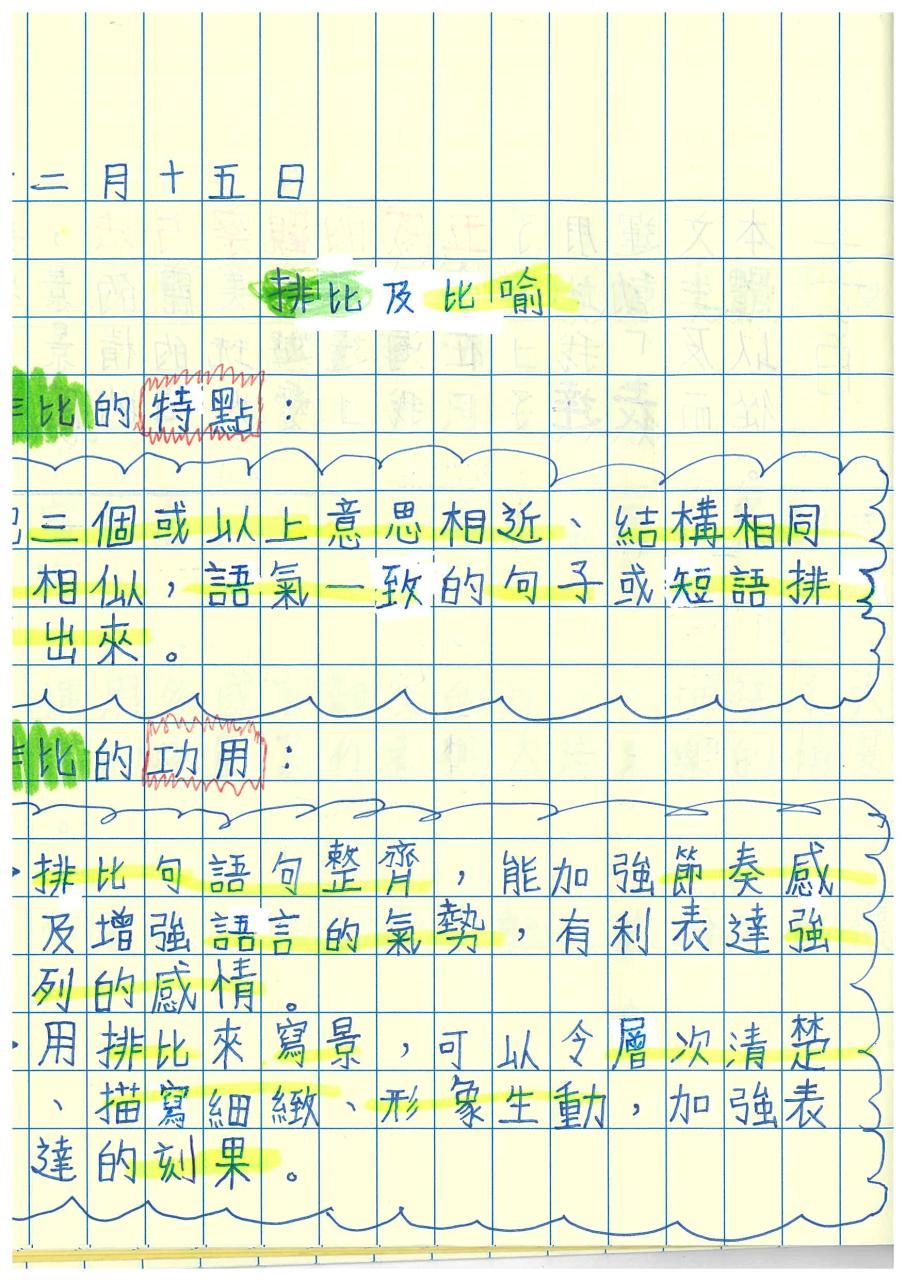 二月十五日
排比及比喻
比的特點：
三個或以上意思相近、結構相同
相似，語氣一致的句子或短語排
出來。
比的功用：
·排比句語句整齊，能加強節奏感
及增強語言的氣勢，有利表達強
列的感情。
·用排比來寫景，可以令層次清楚
、描寫細緻、形象生動，加強表
達的刻果。